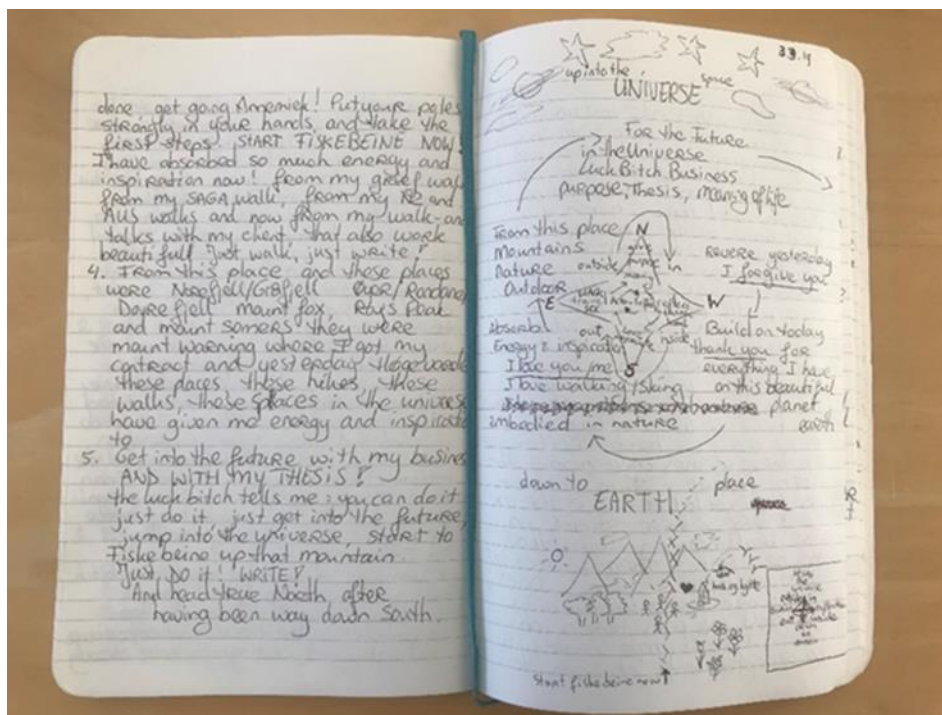 done get going Annemiek! Put your poles
strongly in your hands, and take the
first steps. START FISKEBEINE NOW!
I have absorbed so much energy and
inspiration now! from my grief walk
from my SAGA walk, from my NZ and
AUS walks and now from my walk-and
talks with my client, that also work
beautifull "Just walk, just write!"
4. From this place and those places
were Norefjell/Gråfjell /Rondane,
Dovrefjell mount fox, Roys Peak
and mount somers they were
mount warning where I got my
contract and yesterday
these places those hikes, these
walks, these places in the universe
have given me energy and inspiration
to
5. Get into the future, with my business
AND WITH MY THESIS!
the luck bitch tells me: you can do it
just do it, just get into the future,
jump into the universe, start to
Fiskebeine up that mountain.
"Just, DO it! WRITE!"
And head true North, after
having been way down South.
33.4
up into the space
UNIVERSE
For the Future
in the Universe
Luck Bitch Business
purpose, Thesis, meaning of life
From this place
Mountains
Nature
Outdoor
N
outside in
E W
out inside
S
Revere yesterday
I forgive you
Absorb
Energy & inspiration
I love you, me
I love walking/skiing
imbodied in nature
Build on today
thank you for
everything I have
on this beautiful
planet
earth
down to place
EARTH
start fiskebeine now